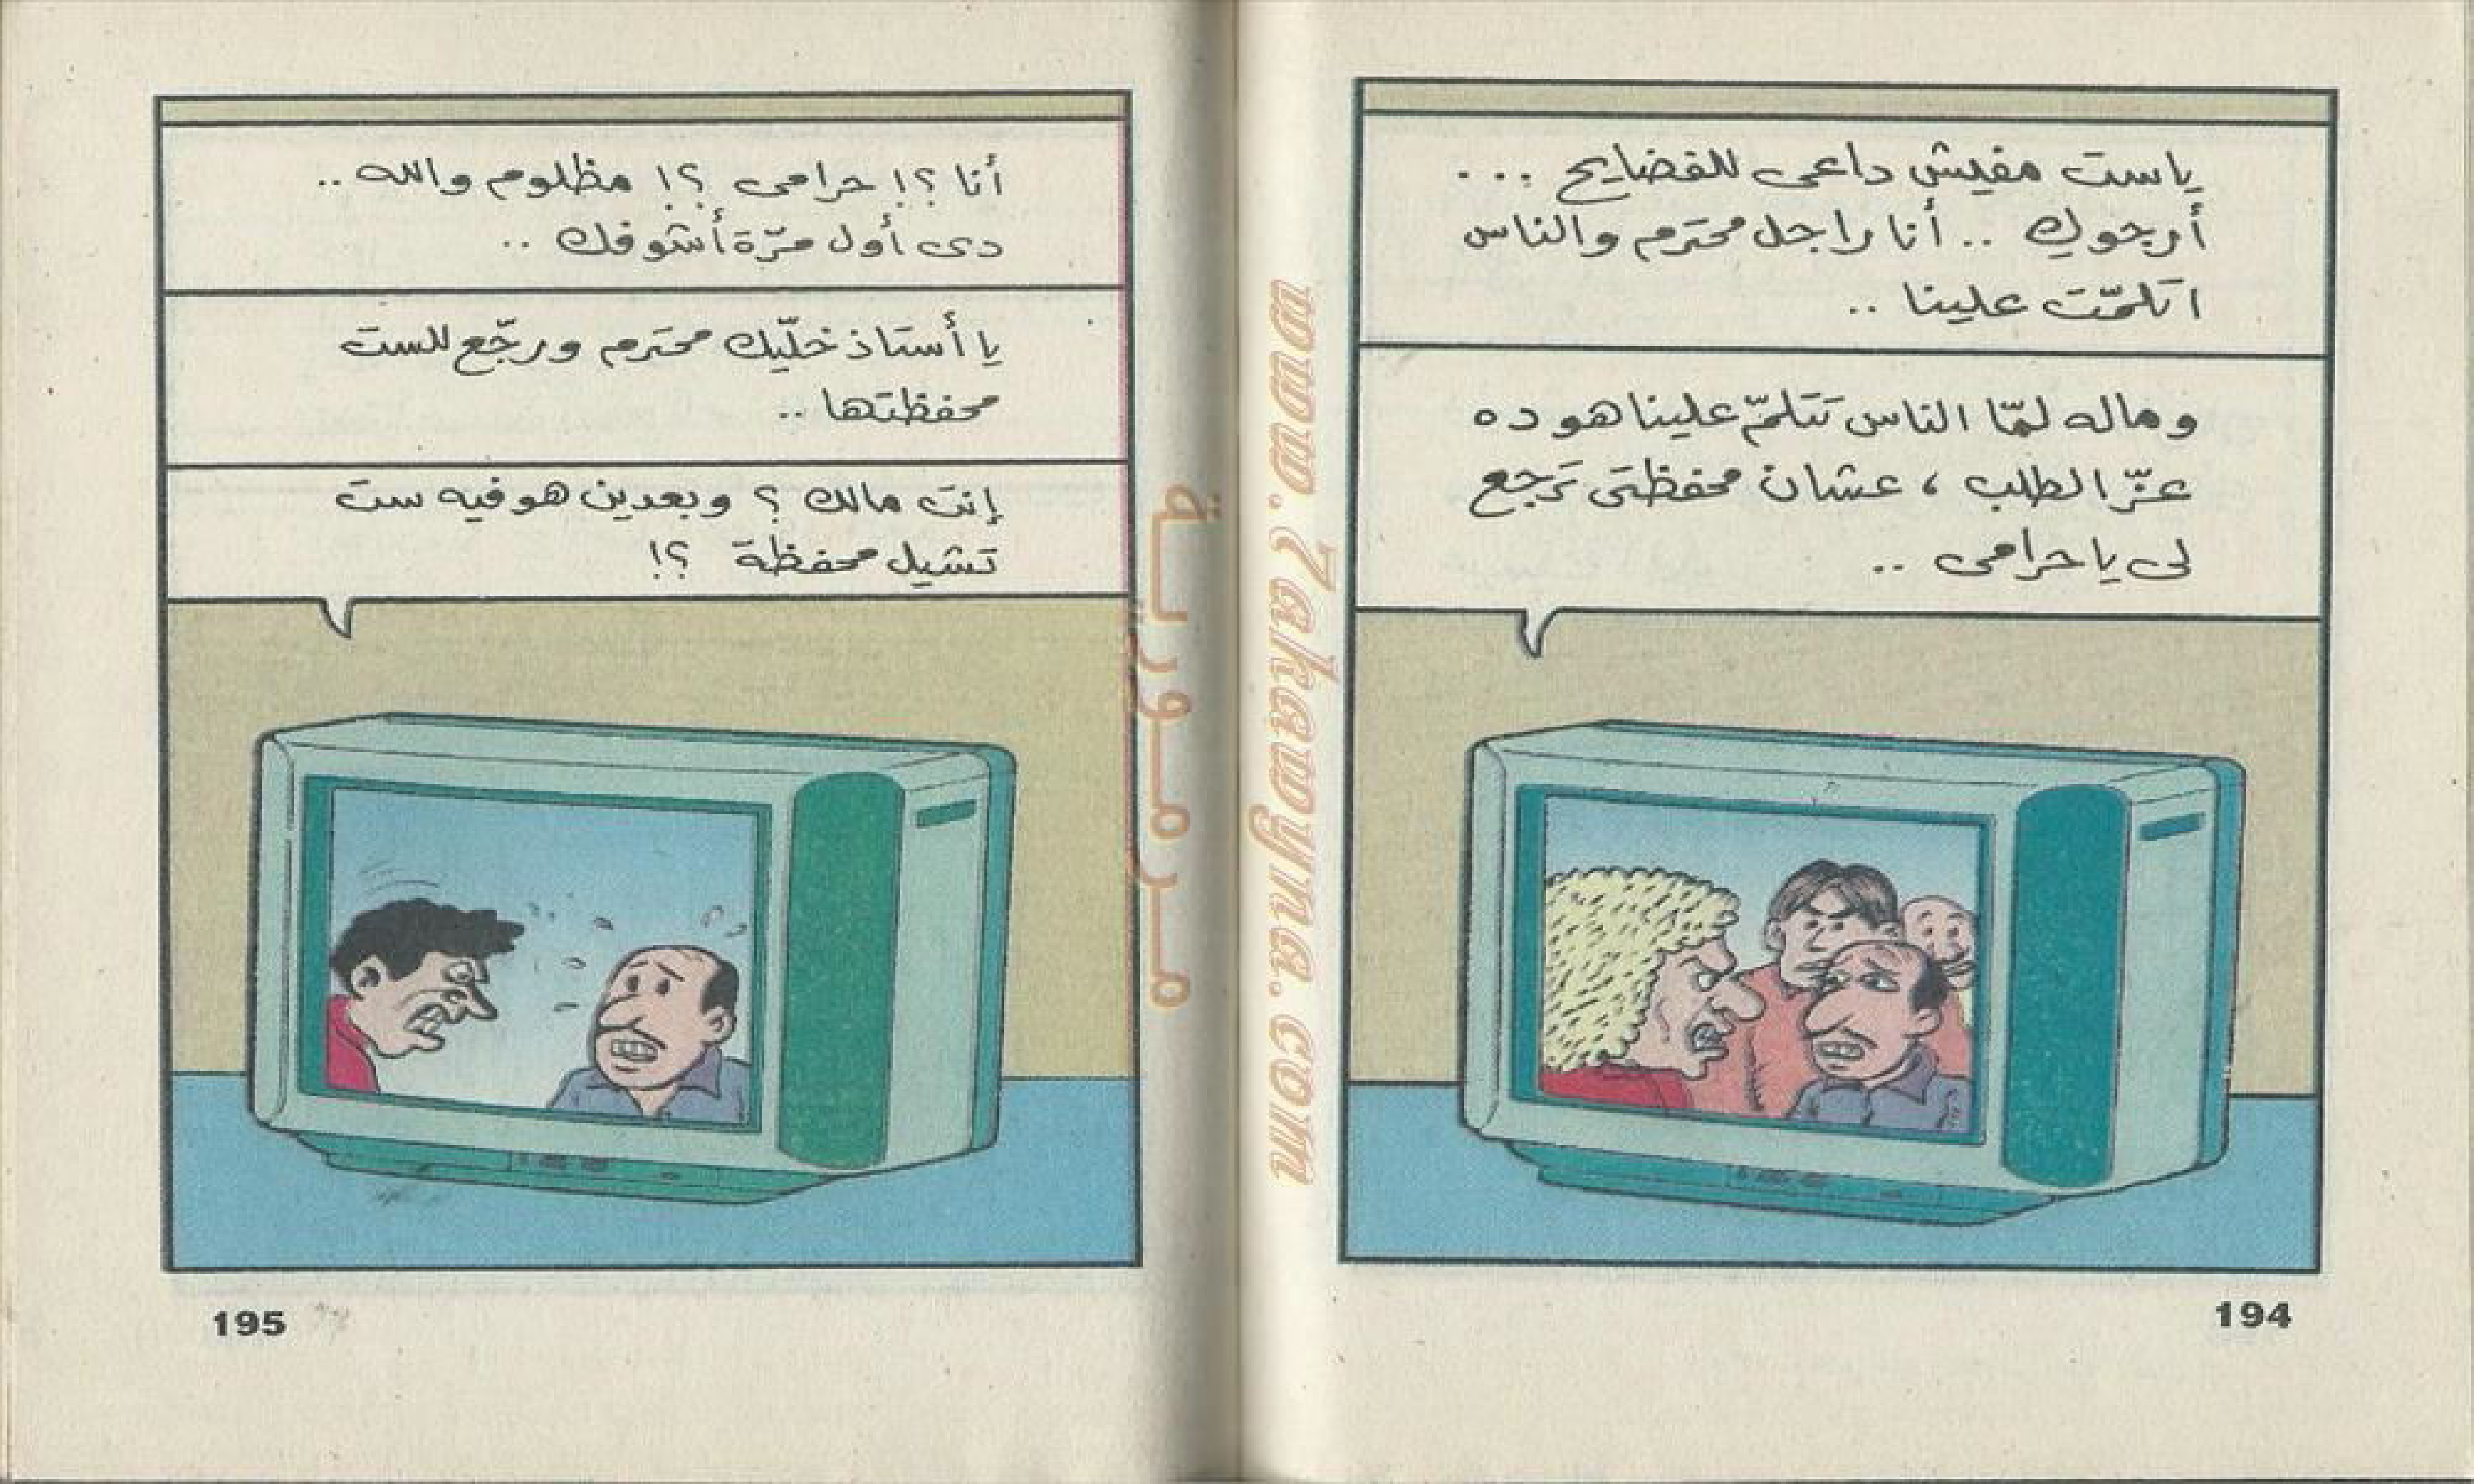 ياست مفيش داعى للفضايح ...
أرجوكِ .. أنا راجل محترم والناس
اتلمّت علينا ..
وماله لمّا الناس تتلمّ علينا هو ده
عزّ الطلب ، عشان محفظتى تَرجع
لى يا حرامى ..
194
أنا ؟! حرامى ؟! مظلوم والله ..
دى أول مرّة أشوفك ..
يا أستاذ خلّيك محترم ورجّع للست
محفظتها ..
إنت مالك ؟ وبعدين هو فيه ست
تشيل محفظة ؟!
195
www.7akawyna.com
مرمورية